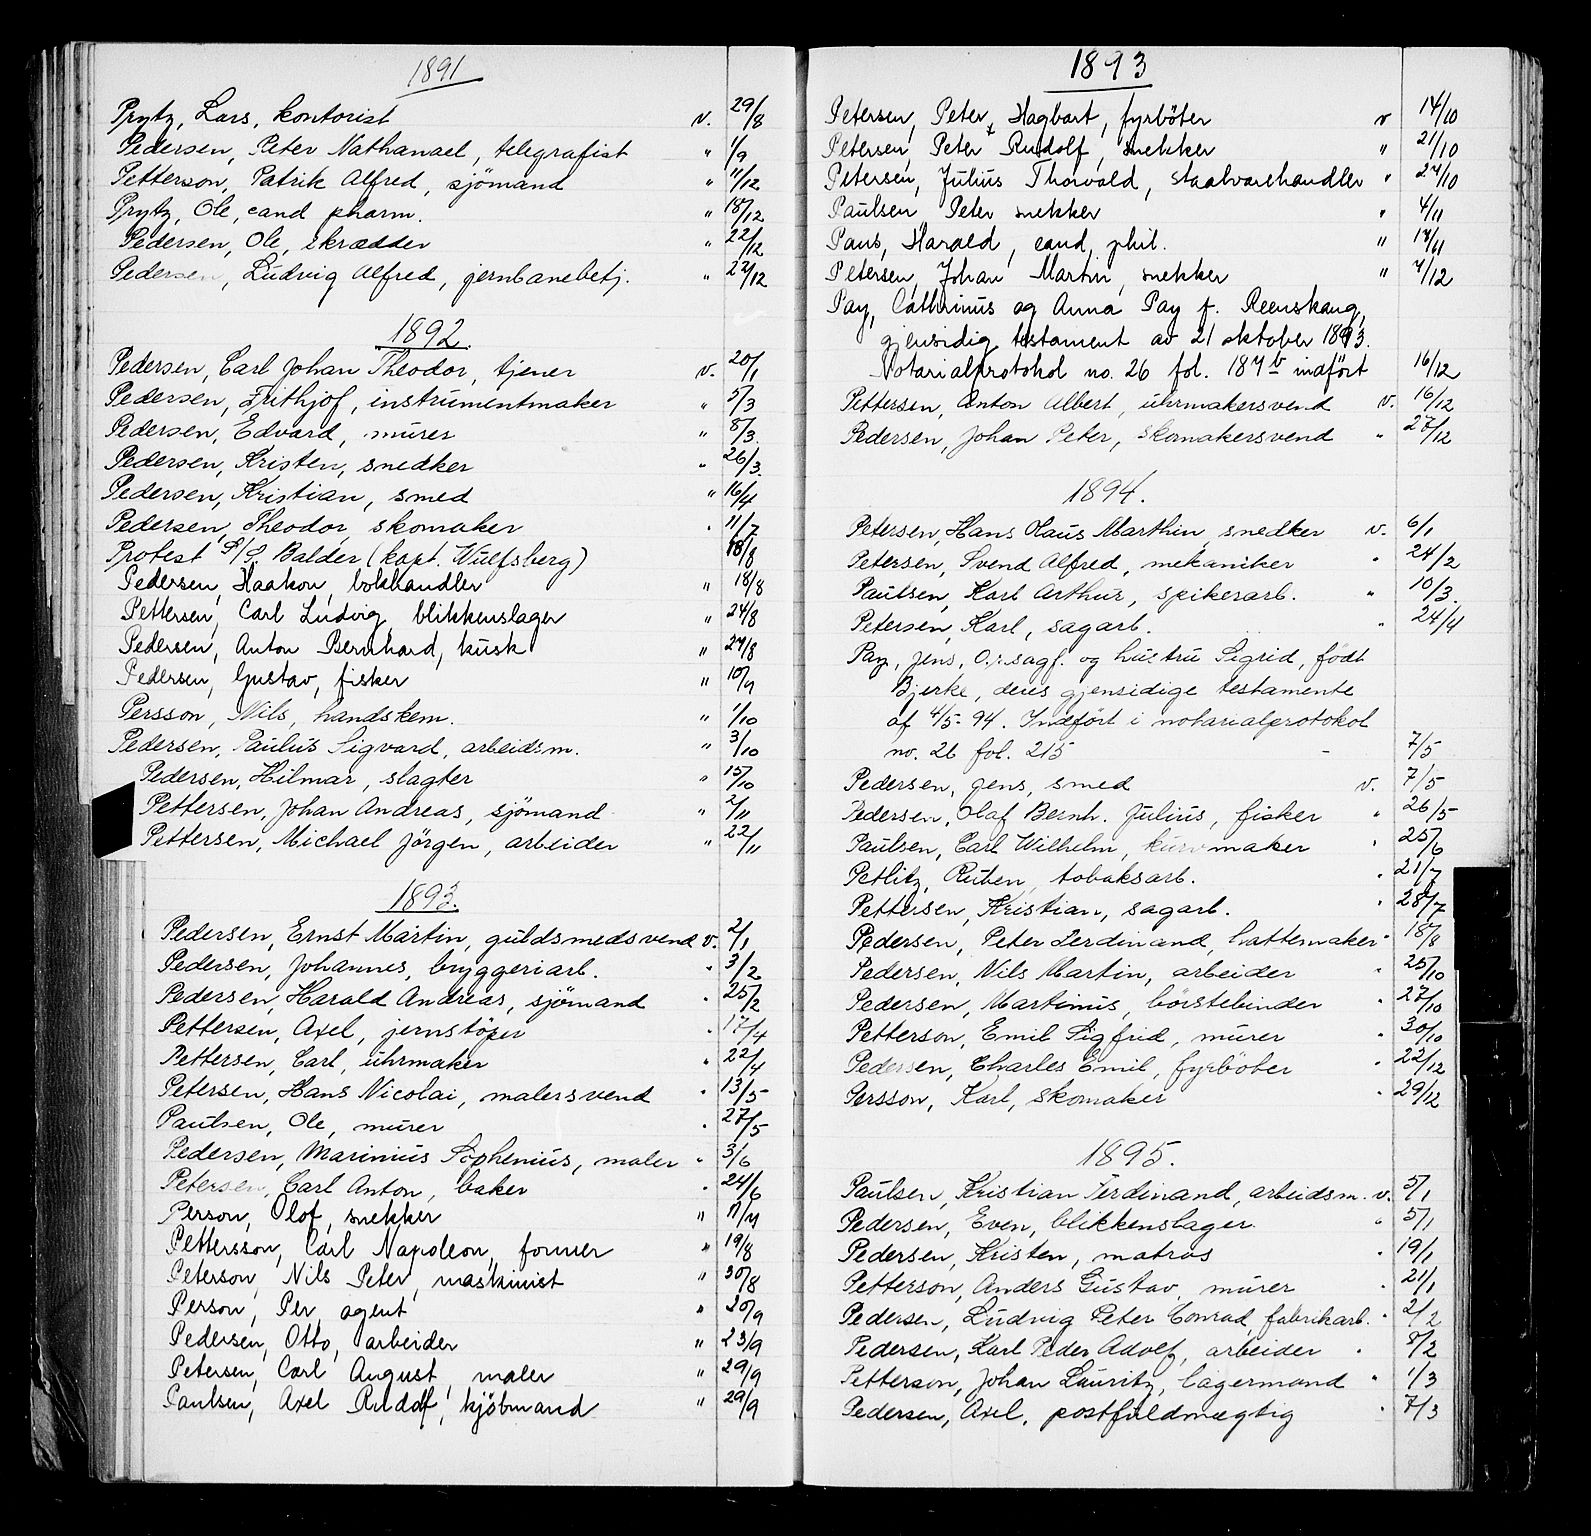 1891
Prytz, Lars, kontorist v. 29/8
Pedersen, Peter Nathanael, telegrafist " 1/9
Petterson, Patrik Alfred, sjömand " 11/12
Prytz, Ole, cand pharm. " 18/12
Pedersen, Ole, skrædder " 22/12
Pedersen, Ludvig Alfred, jernbanebetj. " 22/12
1892.
Pedersen, Carl Johan Theodor, tjener v. 20/1
Pedersen, Frithjof, instrumentmaker " 5/3
Pedersen, Edvard, murer " 8/3.
Pedersen, Kristen, snedker " 26/3.
Pedersen, Kristian, smed " 16/4
Pedersen, Theodor, skomaker " 11/7
Protest S/S. Balder (kapt. Wulfsberg) 18/8
Pedersen, Haakon, bokhandler " 18/8
Pettersen, Carl Ludvig, blikkenslager " 24/8
Pedersen, Anton Bernhard, kusk " 27/8
Pedersen, Gustav, fisker " 10/9
Persson, Nils, handskem. " 1/10
Pedersen, Paulus Sigvard, arbeidsm. " 3/10
Pedersen, Hilmar, slagter " 15/10
Pettersen, Johan Andreas, sjömand " 2/11
Pettersen, Michael Jörgen, arbeider " 22/11
1893.
Pedersen, Ernst Martin, guldsmedsvend v. 2/1
Pedersen, Johannes, bryggeriarb. " 3/2
Pedersen, Harald Andreas, sjömand " 25/2
Pettersen, Axel, jernstöper " 17/4
Pettersen, Carl, uhrmaker " 22/4
Petersen, Hans Nicolai, malersvend " 13/5
Paulsen, Ole, murer " 27/5
Pedersen, Marinius Stephenius, maler " 3/6
Petersen, Carl Anton, baker " 24/6
Person, Olof, snekker "
Pettersson, Carl Napoleon, former " 19/8
Peterson, Nils Peter, maskinist " 30/8
Person, Per, agent " 20/9
Pedersen, Otto, arbeider " 23/9
Petersen, Carl August, maler " 29/9
Paulsen, Axel Rudolf, kjöbmand " 29/9
1893
Petersen, Peter Hagbart, fyrböter v 14/10
Petersen, Peter Rudolf, snekker " 21/10
Petersen, Julius Thorvald, staalvarehandler " 27/10
Paulsen, Peter snekker " 4/11
Paus, Harald, cand. phil. " 14/11
Petersen, Johan Martin, snekker " 4/12
Pay, Cathrinus og Anna Pay f. Reenskaug,
gjensidig testament av 21 oktober 1893.
Notarialprotokol no. 26 fol. 187 b indfört 16/12
Pettersen, Anton Albert, uhrmakersvend v. 16/12
Pedersen, Johan Peter, skomakersvend " 27/12
1894.
Petersen, Hans Claus Marthin, snedker v. 6/1
Petersen, Svend Alfred, mekaniker " 24/2
Paulsen, Karl Arthur, spikerarb. " 10/3.
Petersen, Karl, sagarb. " 24/4
Pay, Jens, O.r.sagf. og hustru Sigrid, födt
Bjerke, deres gjensidige testamente
af 4/5-94. Indfört i notarialprotokol
no. 26 fol. 215 - 7/5
Pedersen, Jens, smed v. 7/5
Pedersen, Olaf Bernh. Julius, fisker " 26/5
Paulsen, Carl Wilhelm, kurvmaker " 25/6
Petlitz, Ruben, tobaksarb. " 21/7
Pettersen, Kristian, sagarb. " 28/7
Pedersen, Peter Ferdinand, hattemaker " 18/8
Pedersen, Nils Martin, arbeider " 25/10
Pedersen, Martinus, börstebinder " 27/10
Petterson, Emil Sigfrid, murer " 30/10
Pedersen, Charles Emil, fyrböter " 22/12
Persson, Karl, skomaker " 29/12
1895.
Paulsen, Kristian Ferdinand, arbeidsm. v. 5/1
Pedersen, Even, blikkenslager " 5/1
Pedersen, Kristen, matros " 19/1
Petterson, Anders Gustav, murer " 21/1
Pedersen, Ludvig Peter Conrad, fabrikarb. " 2/2
Pedersen, Karl Peder Adolf, arbeider " 8/2
Petterson, Johan Lauritz, lagermand " 1/3
Pedersen, Axel, postfuldmægtig " 7/3